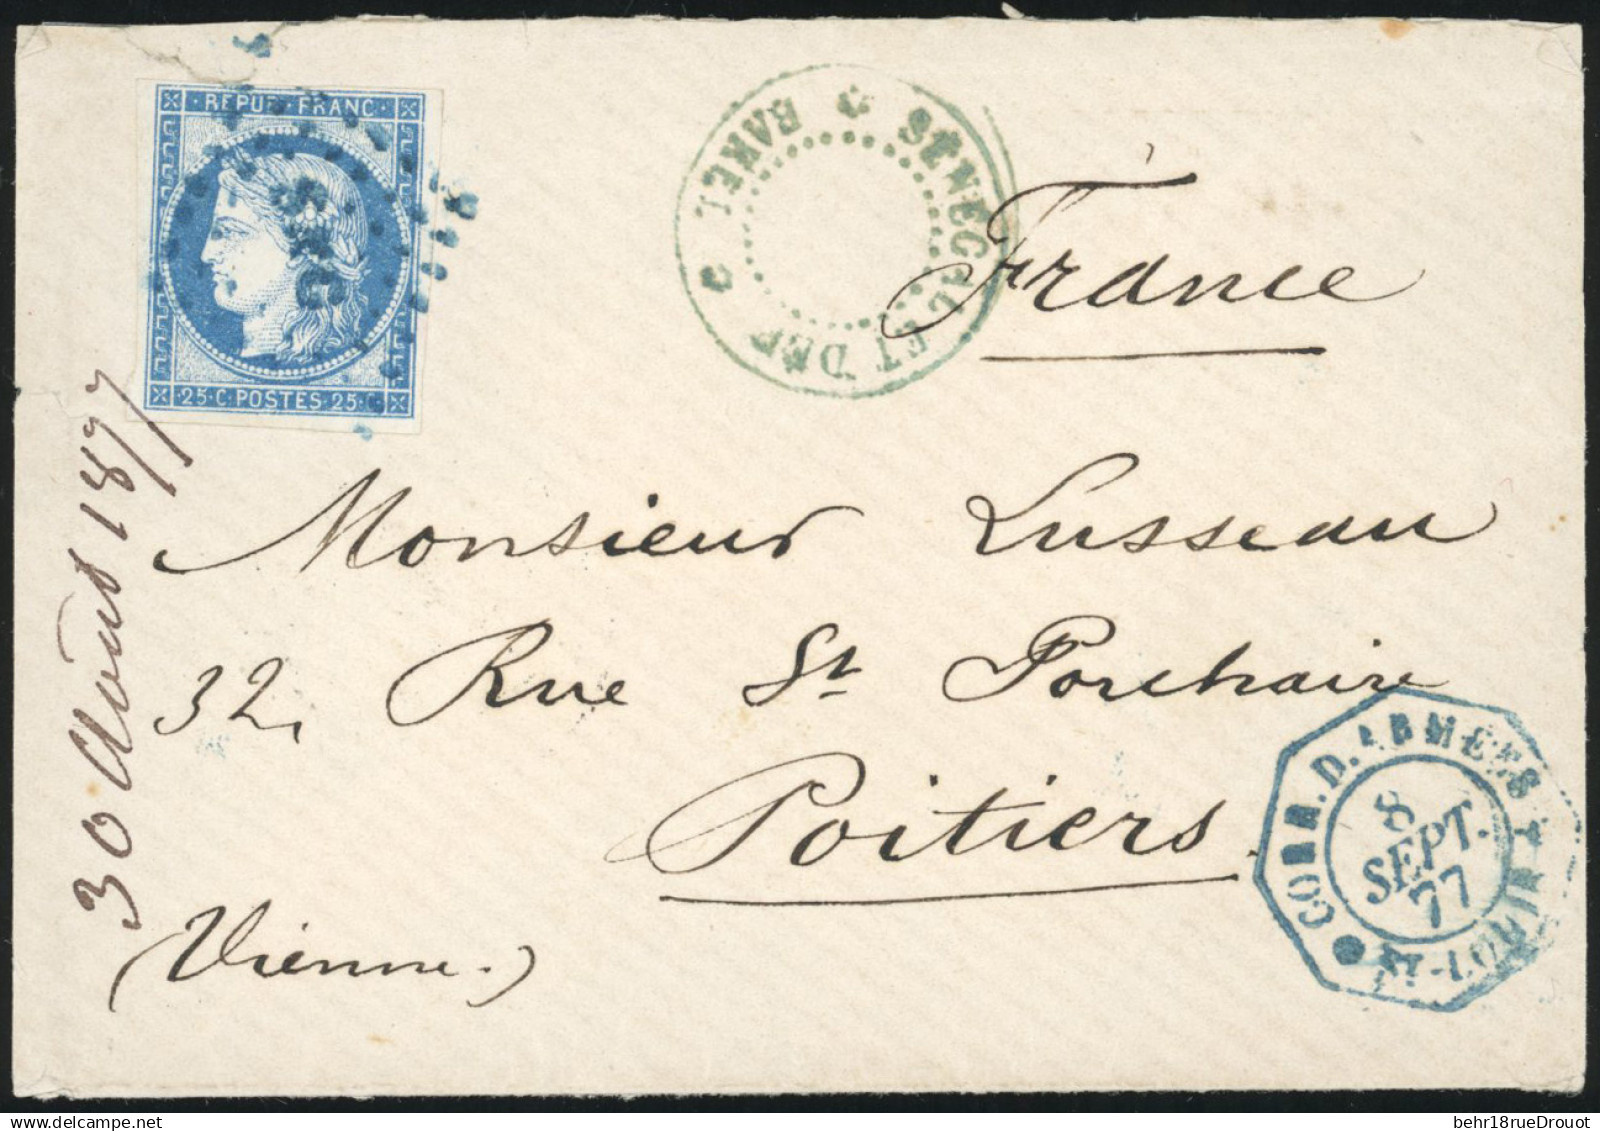 REPUB·FRANC·
SNG
25·C·POSTES·25·C
SENEGAL ET DEP
BAKEL
France
30 Août 1877
Monsieur Lusseau
32, Rue St Porchaire
Poitiers.
(Vienne.)
CORR. D. ARMEES
ST-LOUIS
8
SEPT.
77
behr18rueDrouot